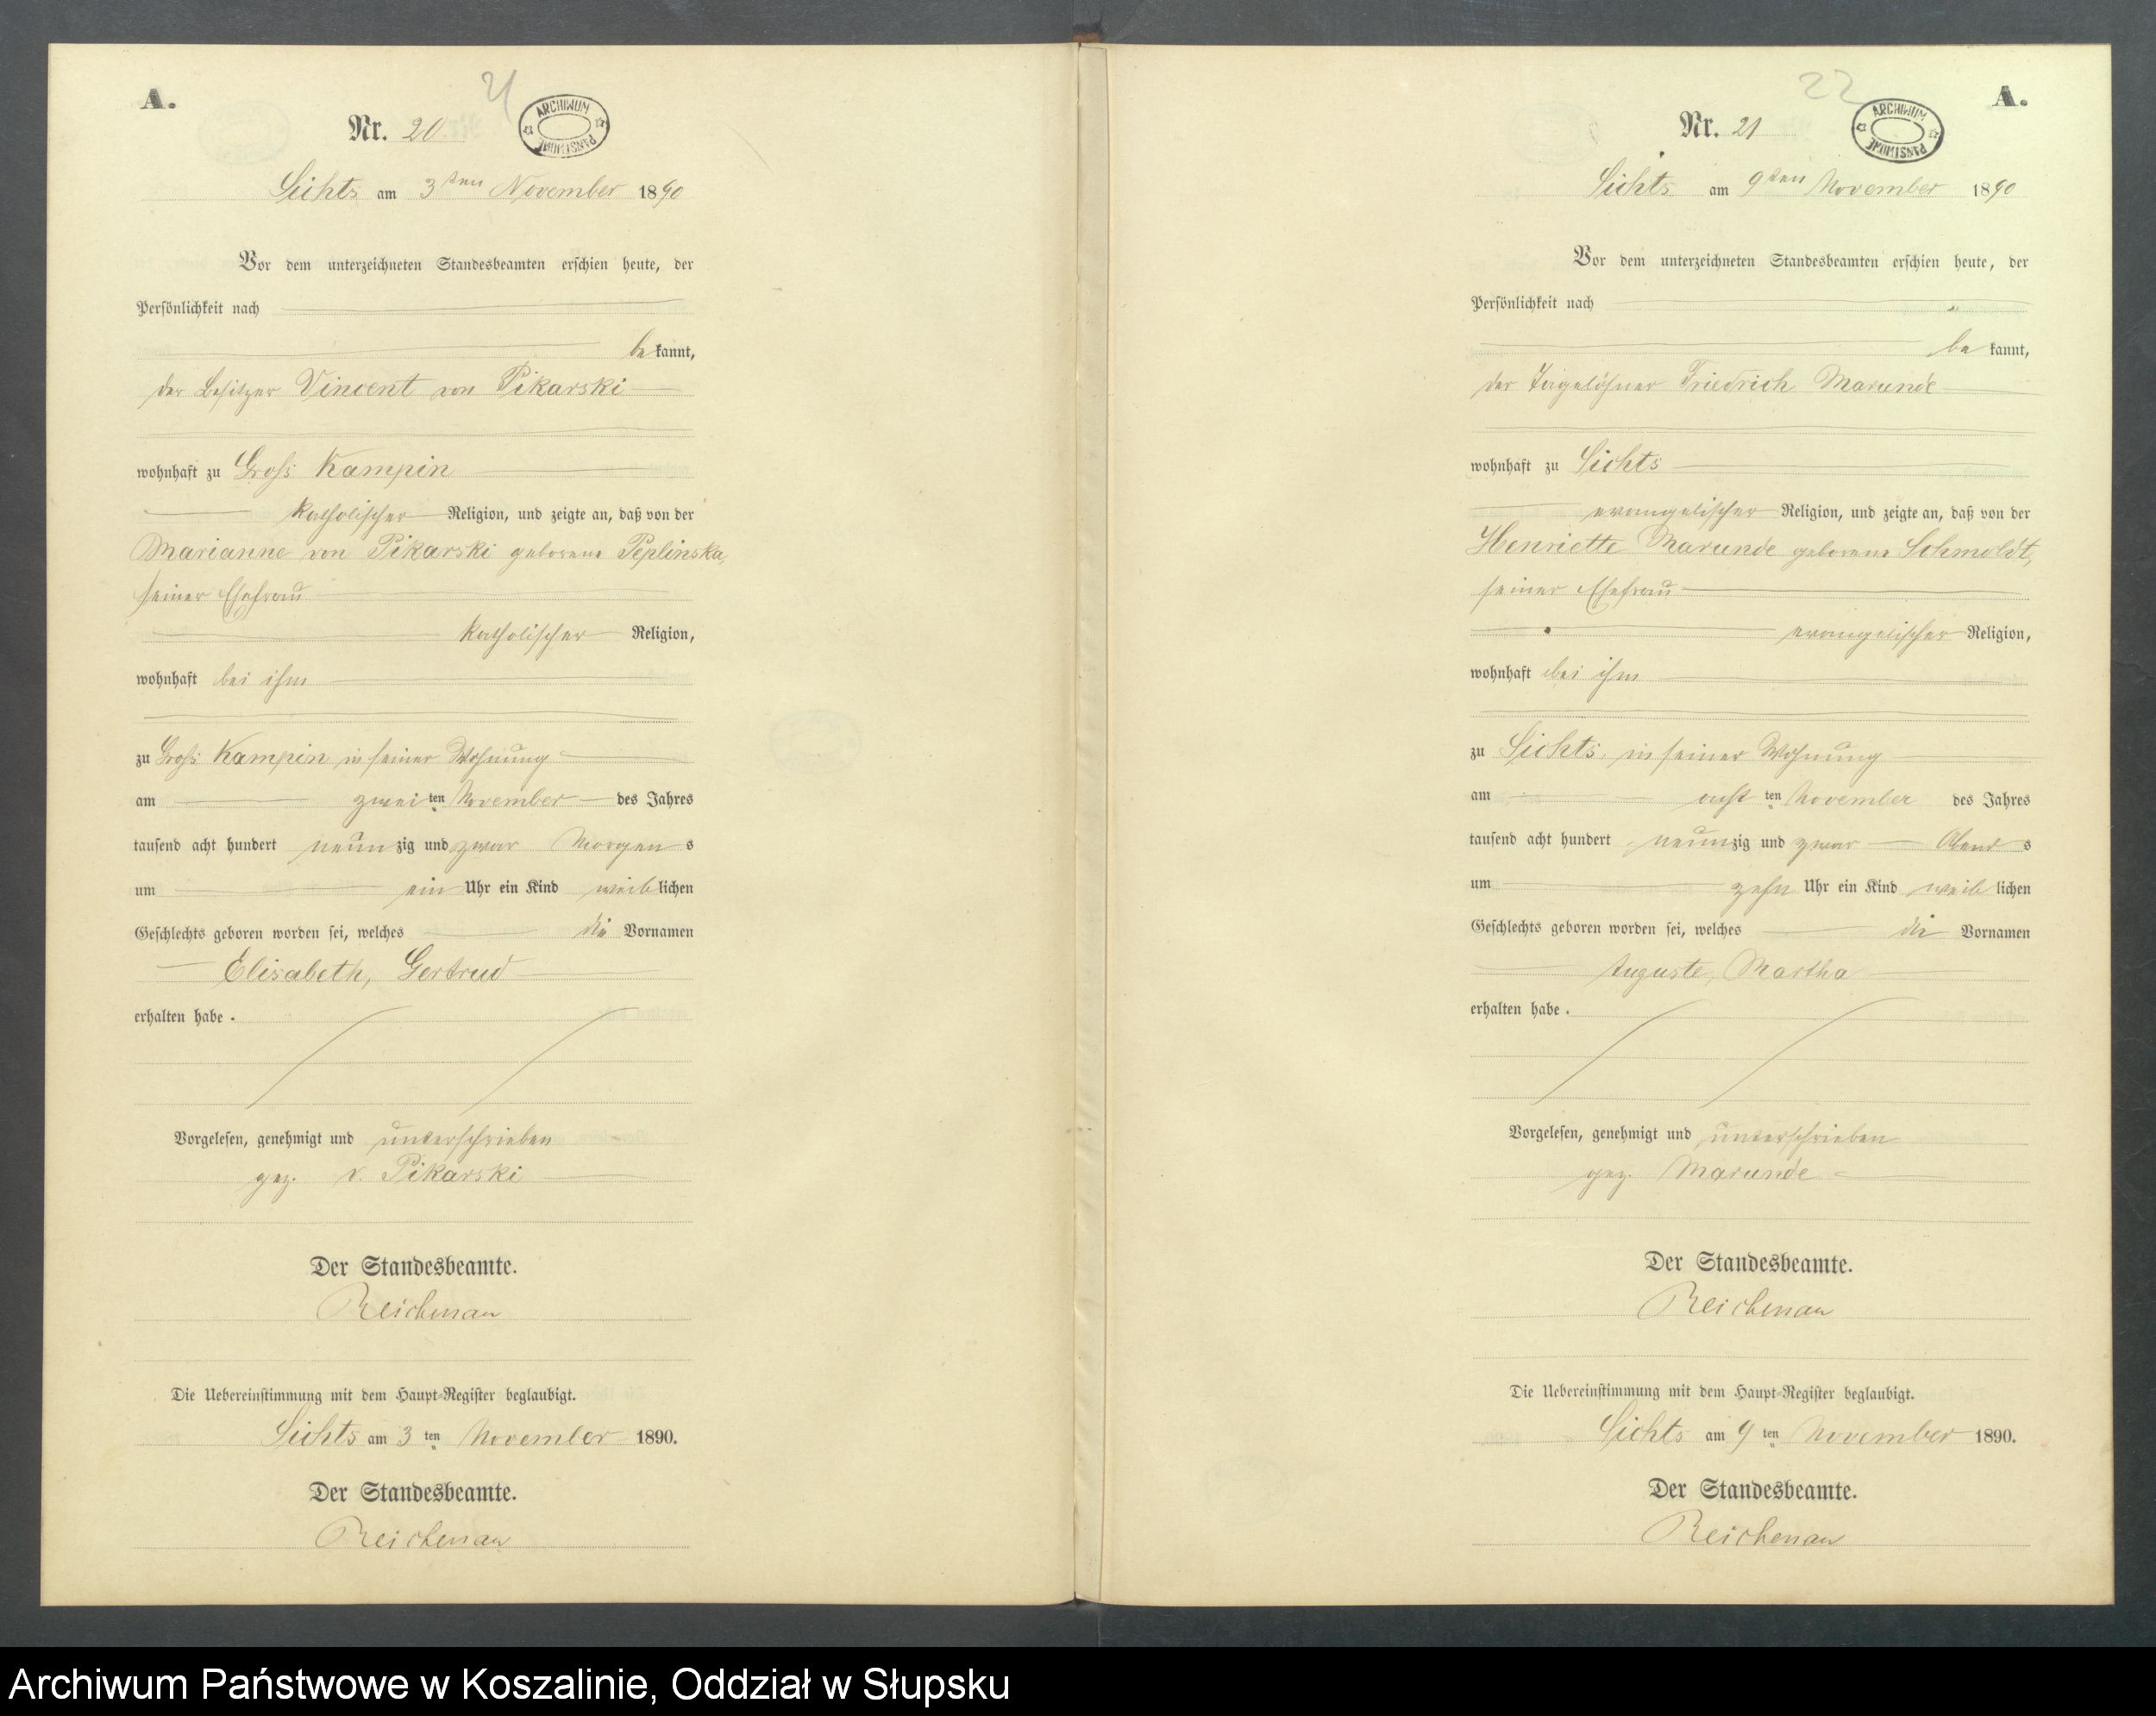 A.
21
Nr. 20
ARCHIWUM PAŃSTWOWE
Lichts am 3ten November 1890
Vor dem unterzeichneten Standesbeamten erschien heute, der
Persönlichkeit nach
bekannt,
der Besitzer Vincent von Pikarski
wohnhaft zu Groß Kampin
katholischer Religion, und zeigte an, daß von der
Marianne von Pikarski geborene Peplinska,
seiner Ehefrau
katholischer Religion,
wohnhaft bei ihm
zu Groß Kampin in seiner Wohnung
am zweiten November des Jahres
tausend acht hundert neunzig und zwar Morgens
um ein Uhr ein Kind weiblichen
Geschlechts geboren worden sei, welches die Vornamen
Elisabeth, Gertrud
erhalten habe.
Vorgelesen, genehmigt und unterschrieben
gez. v. Pikarski
Der Standesbeamte.
Reichenau
Die Uebereinstimmung mit dem Haupt-Register beglaubigt.
Lichts am 3ten November 1890.
Der Standesbeamte.
Reichenau
22
A.
Nr. 21
ARCHIWUM PAŃSTWOWE
Lichts am 9ten November 1890
Vor dem unterzeichneten Standesbeamten erschien heute, der
Persönlichkeit nach
bekannt,
der Tagelöhner Friedrich Marunde
wohnhaft zu Lichts
evangelischer Religion, und zeigte an, daß von der
Henriette Marunde geborene Schmoldt,
seiner Ehefrau
evangelischer Religion,
wohnhaft bei ihm
zu Lichts in seiner Wohnung
am achtten November des Jahres
tausend acht hundert neunzig und zwar Abends
um zehn Uhr ein Kind weiblichen
Geschlechts geboren worden sei, welches die Vornamen
Auguste, Martha
erhalten habe.
Vorgelesen, genehmigt und unterschrieben
gez. Marunde
Der Standesbeamte.
Reichenau
Die Uebereinstimmung mit dem Haupt-Register beglaubigt.
Lichts am 9ten November 1890.
Der Standesbeamte.
Reichenau
Archiwum Państwowe w Koszalinie, Oddział w Słupsku